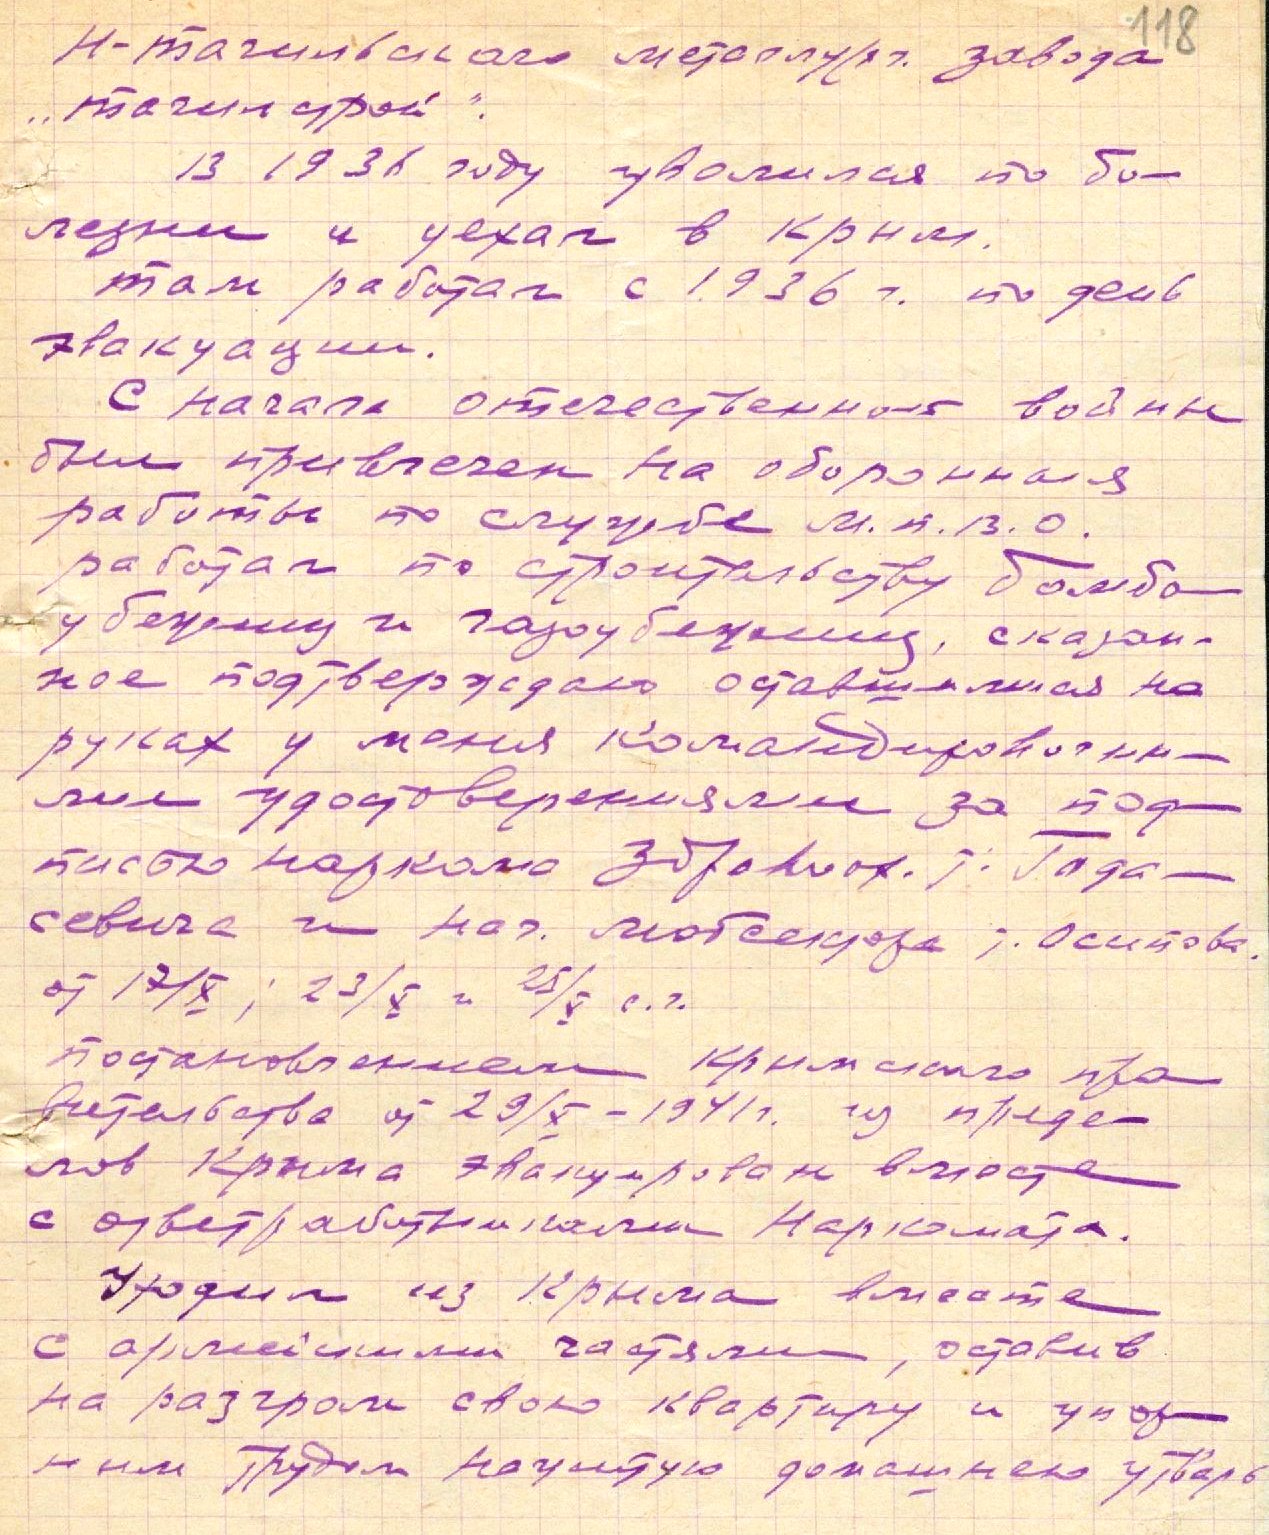 118
Н-Тагильского металлург. завода
„Тагилстрой".
В 1936 году уволился по бо-
лезни и уехал в Крым.
Там работал с 1936 г. по день
эвакуации.
С начала отечественной войны
был привлечен на оборонная
работы по службе М.П.В.О.
работал по строительству бомбо-
убежищ и газоубежищ, сказан-
ное подтверждаю оставшимися на
руках у меня командировочны-
ми удостоверениями за под-
писью наркома Здравоох. т.
севича и нач. т. Осипова.
от 17/X; 23/X и 25/X с.г.
Постановлением Крымского пра
вительства от 29/X - 1941 г. из преде-
лов Крыма эвакуирован вместе
с ответработниками Наркомата.
Уходил из Крыма вместе
с армейскими частями, оставив
на разгром свою квартиру и упор-
ным трудом нажитую домашнею утварь